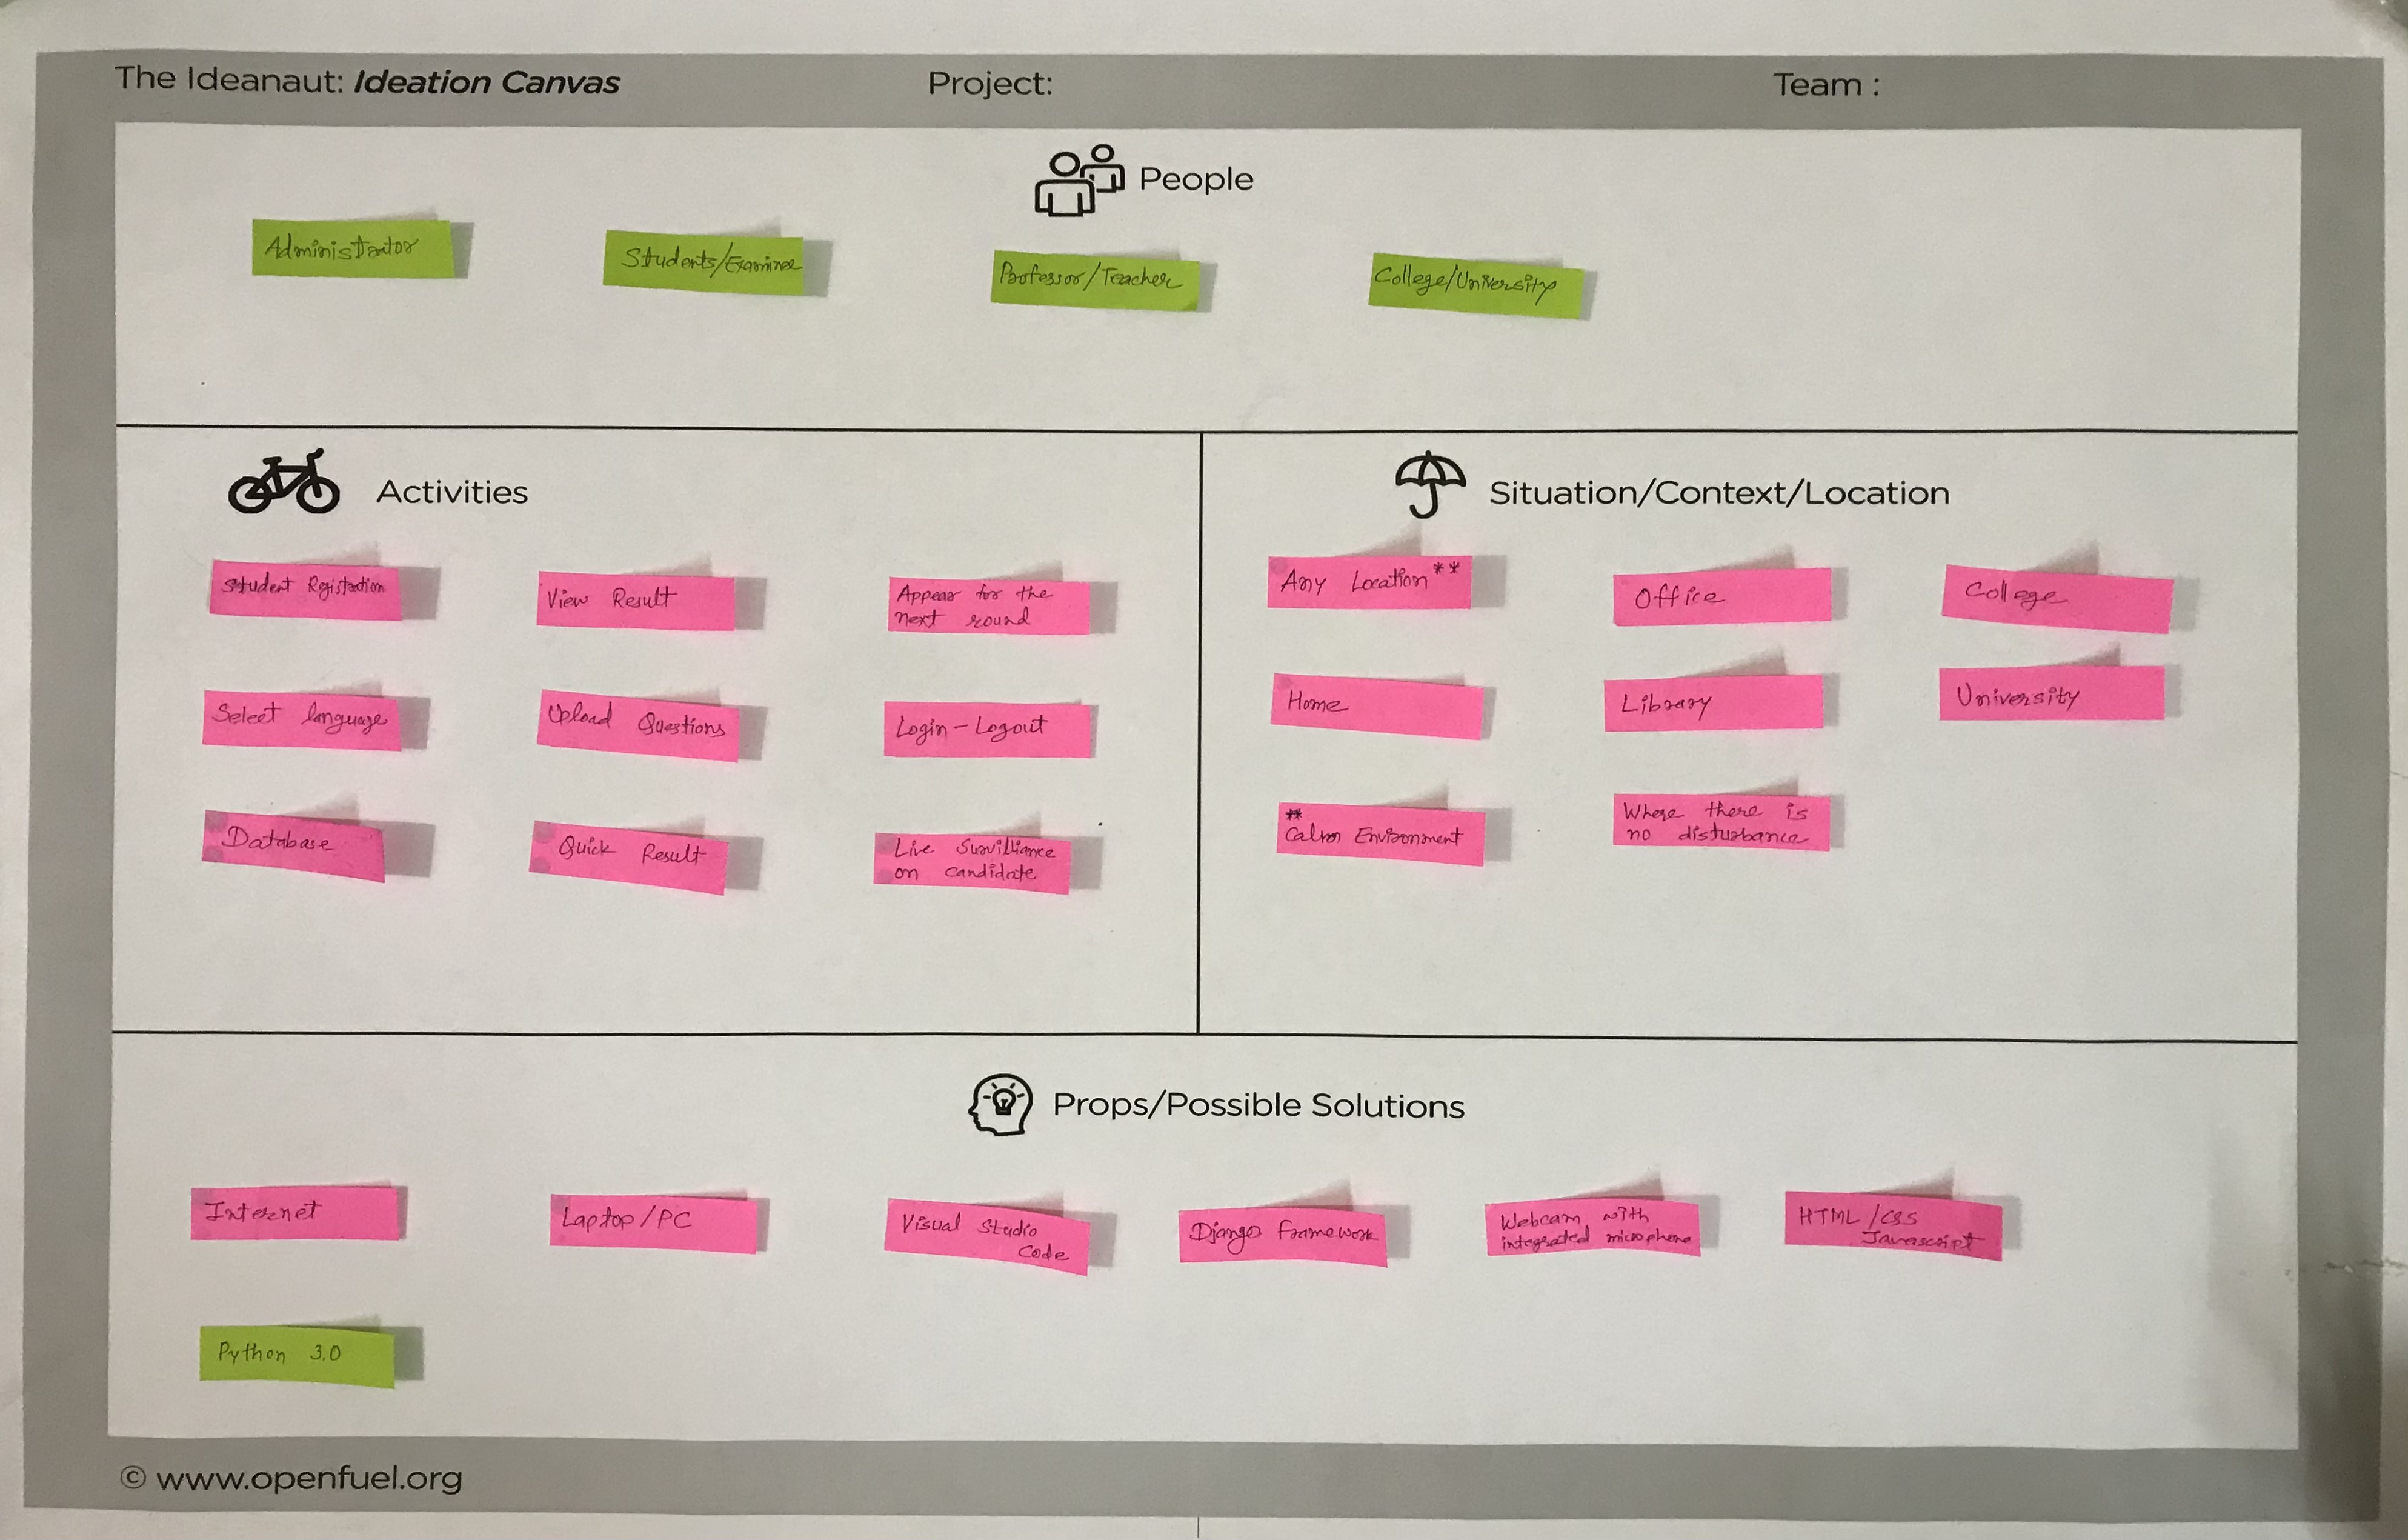 The Ideanaut: Ideation Canvas
Project:
Team :
People
Administrator
Students/Examinee
Professor/Teacher
College/University
Activities
Student Registration
View Result
Appear for the
next round
Select language
Upload Questions
Login-Logout
Database
Quick Result
Live Survilliance
on candidate
Situation/Context/Location
Any Location**
Office
College
Home
Library
University
**
Calm Environment
Where there is
no disturbance
Props/Possible Solutions
Internet
Laptop/PC
Visual Studio
Code
Django Framework
Webcam with
integrated microphone
HTML/CSS
Javascript
Python 3.0
© www.openfuel.org